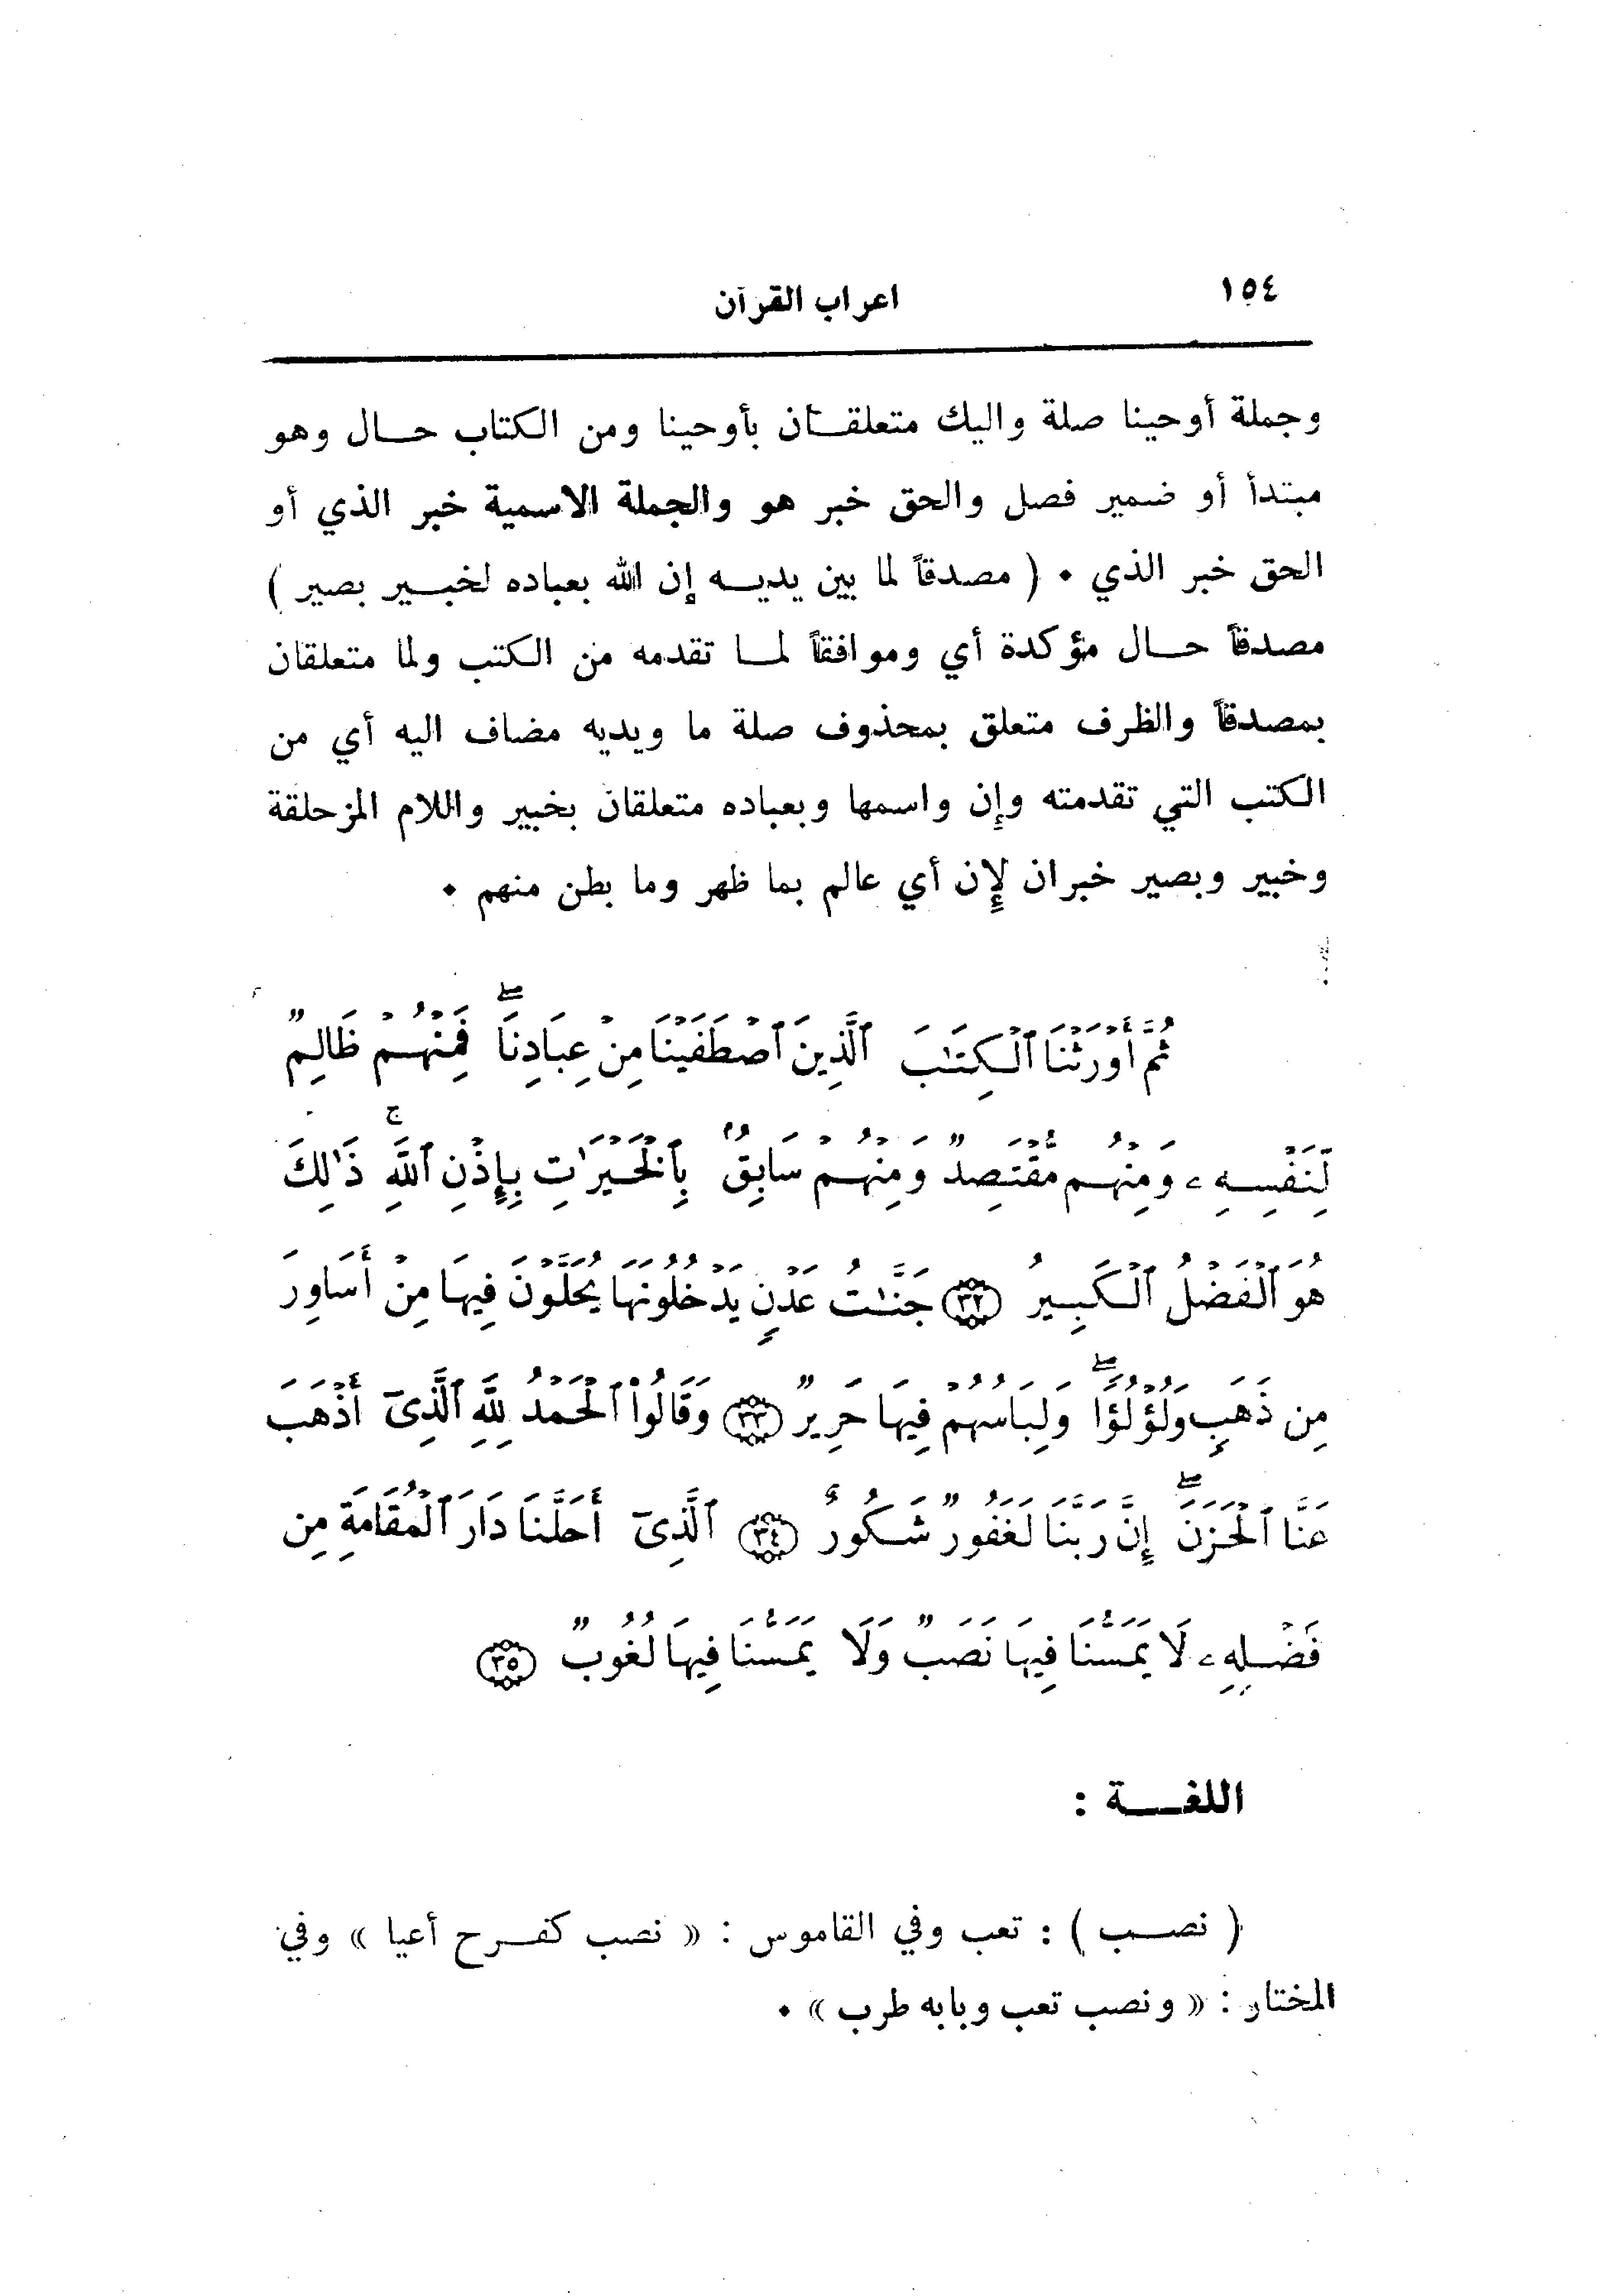 ١٥٤
اعراب القرآن
وجملة أوحينا صلة واليك متعلقان بأوحينا ومن الكتاب حال وهو
مبتدأ أو ضمير فصل والحق خبر هو والجملة الاسمية خبر الذي أو
الحق خبر الذي . ( مصدقاً لما بين يديه إن الله بعباده لخبير بصير )
مصدقاً حال مؤكدة أي وموافقاً لما تقدمه من الكتب ولما متعلقان
بمصدقاً والظرف متعلق بمحذوف صلة ما ويديه مضاف اليه أي من
الكتب التي تقدمته وإن واسمها وبعباده متعلقان بخبير واللام المزحلقة
وخبير وبصير خبران لإن أي عالم بما ظهر وما بطن منهم .
ثُمَّ أَوْرَثْنَا ٱلْكِتَٰبَ ٱلَّذِينَ ٱصْطَفَيْنَا مِنْ عِبَادِنَا ۖ فَمِنْهُمْ ظَالِمٌ
لِّنَفْسِهِۦ وَمِنْهُم مُّقْتَصِدٌ وَمِنْهُمْ سَابِقٌۢ بِٱلْخَيْرَٰتِ بِإِذْنِ ٱللَّهِ ۚ ذَٰلِكَ
هُوَ ٱلْفَضْلُ ٱلْكَبِيرُ ﴿٣٢﴾ جَنَّٰتُ عَدْنٍ يَدْخُلُونَهَا يُحَلَّوْنَ فِيهَا مِنْ أَسَاوِرَ
مِن ذَهَبٍ وَلُؤْلُؤًا ۖ وَلِبَاسُهُمْ فِيهَا حَرِيرٌ ﴿٣٣﴾ وَقَالُوا۟ ٱلْحَمْدُ لِلَّهِ ٱلَّذِىٓ أَذْهَبَ
عَنَّا ٱلْحَزَنَ ۖ إِنَّ رَبَّنَا لَغَفُورٌ شَكُورٌ ﴿٣٤﴾ ٱلَّذِىٓ أَحَلَّنَا دَارَ ٱلْمُقَامَةِ مِن
فَضْلِهِۦ لَا يَمَسُّنَا فِيهَا نَصَبٌ وَلَا يَمَسُّنَا فِيهَا لُغُوبٌ ﴿٣٥﴾
اللغة :
( نصب ) : تعب وفي القاموس : « نصب كفرح أعيا » وفي
المختار : « ونصب تعب وبابه طرب » .